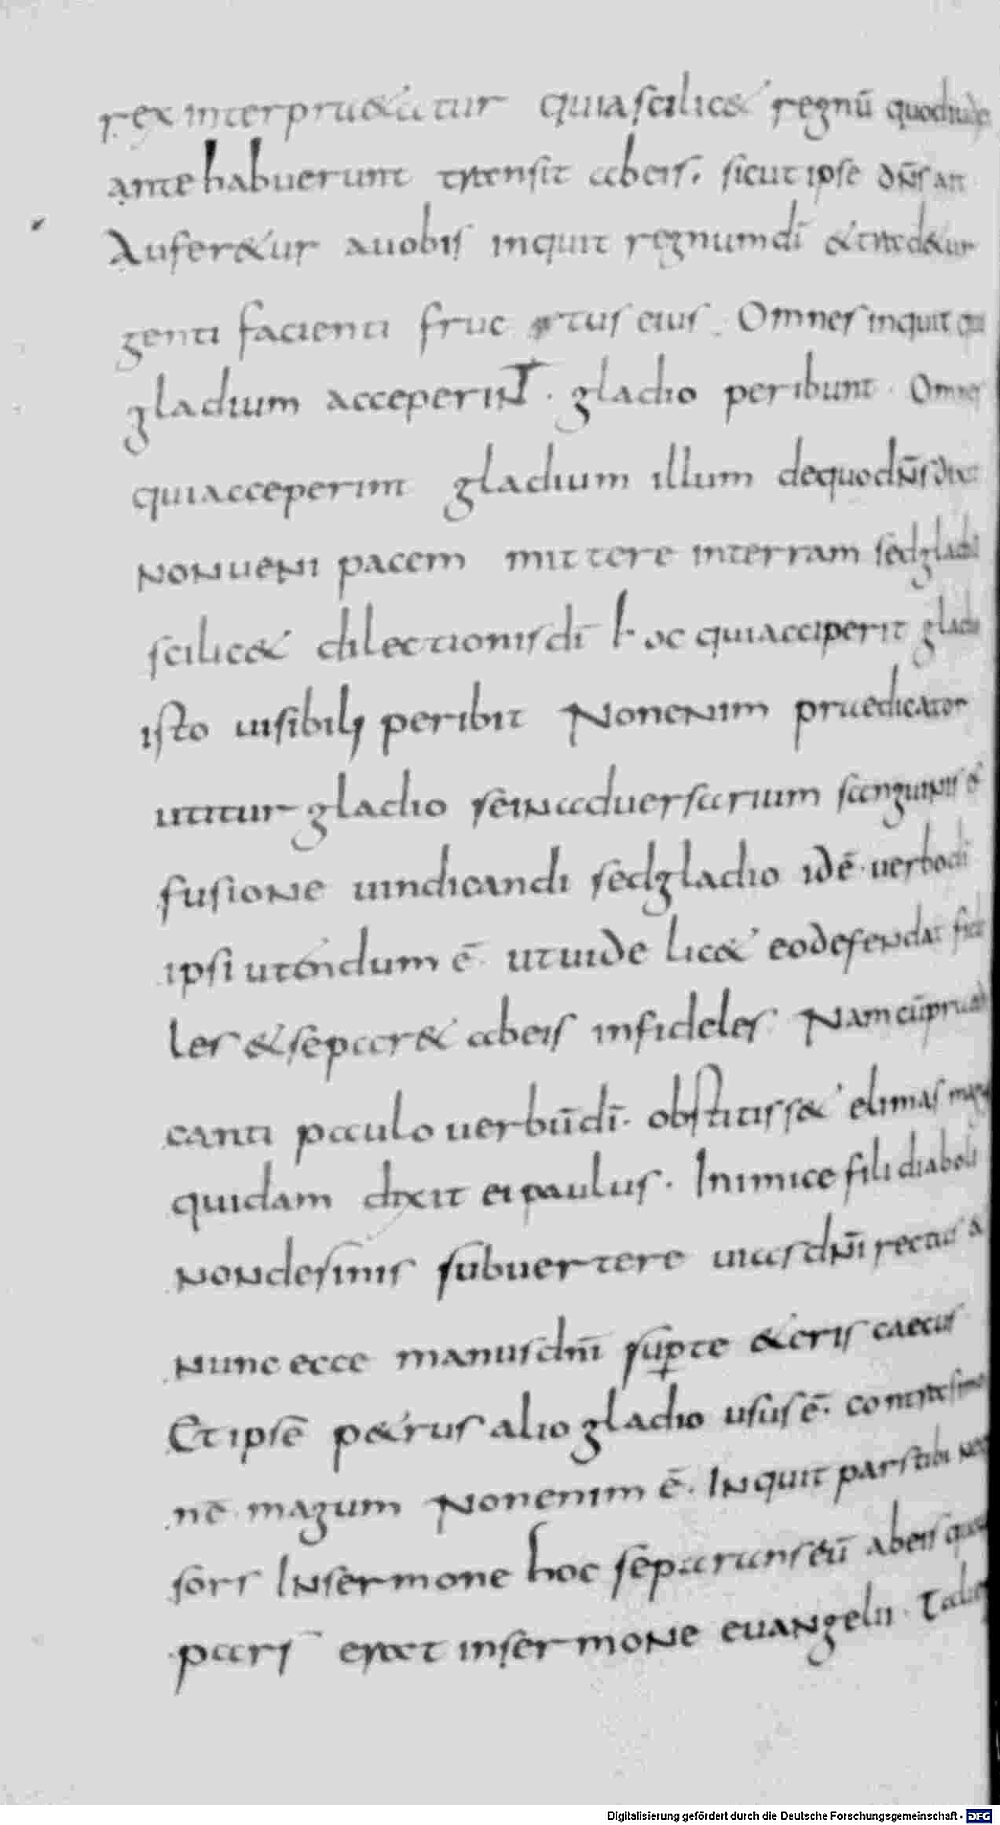 rex interpraetatur quia scilicet regnū quod iudei
ante habuerunt transit ab eis. sicut ipse dn̄s ait
Auferetur a vobis inquit regnum dī et tradetur
genti facienti fructus eius. Omnes inquit qui
gladium acceperint. gladio peribunt. Omnes
qui acceperint gladium illum de quo dn̄s dixit
non veni pacem mittere in terram sed gladiū
scilicet dilectionis dī hoc qui acciperit gladio
isto visibili peribit Non enim praedicator
utitur gladio se in adversarium sanguinis ef
fusione vindicandi sed gladio id ē. verbo dī
ipsi utendum ē. ut vide licet eo defendat fide
les et separet ab eis infideles. Nam cū praedi
canti paulo verbū dī. obstitisset elimas magus
quidam dixit ei paulus. Inimice fili diaboli
non desinis subvertere vias dn̄i rectas
Nunc ecce manus dn̄i sup te et eris caecus
Et ipse petrus alio gladio usus ē. contra simo
nē magum Non enim ē. Inquit pars tibi neq
sors In sermone hoc separans eū ab eis
pars erat in sermone evangelii.